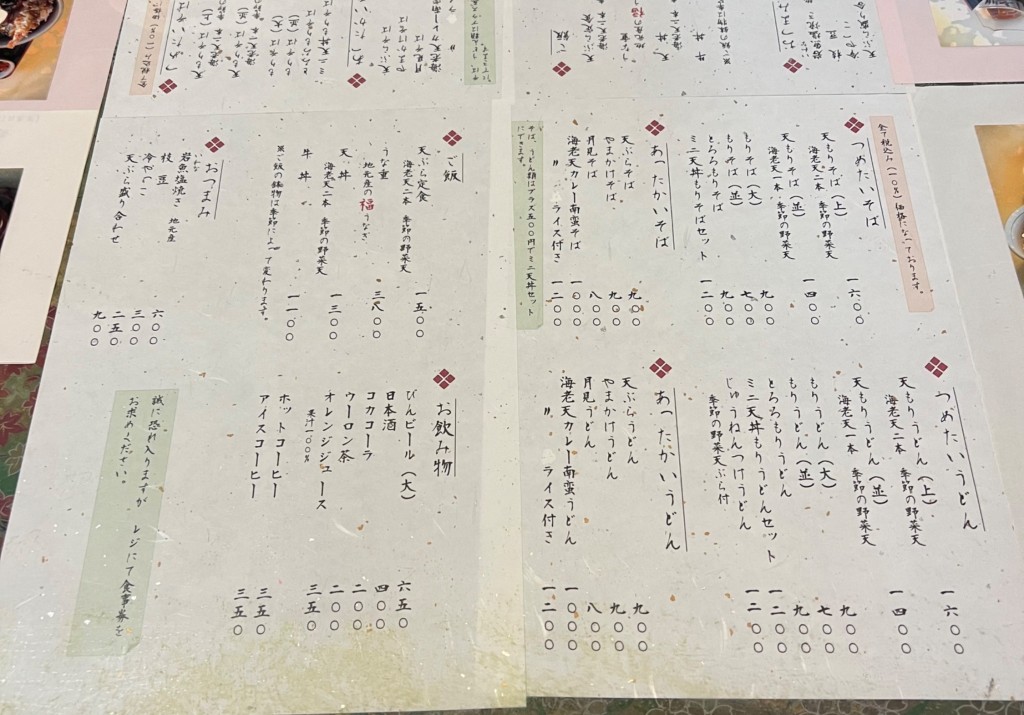 全て税込み（一〇％）価格になっております。
つめたいそば
天もりそば（上） 一六〇〇
海老天二本 季節の野菜天
天もりそば（並） 一四〇〇
海老天一本 季節の野菜天
もりそば（大） 九〇〇
もりそば（並） 七〇〇
とろろもりそば 九〇〇
ミニ天丼もりそばセット 一二〇〇
あったかいそば
天ぷらそば 九〇〇
やまかけそば 九〇〇
月見そば 八〇〇
海老天カレー南蛮そば 一〇〇〇
〃 ライス付き 一二〇〇
そば、うどん類はプラス五〇〇円でミニ天丼セット
にできます。
つめたいうどん
天もりうどん（上） 一六〇〇
海老天二本 季節の野菜天
天もりうどん（並） 一四〇〇
海老天一本 季節の野菜天
もりうどん（大） 九〇〇
もりうどん（並） 七〇〇
とろろもりうどん 九〇〇
ミニ天丼もりうどんセット 一二〇〇
じゅうねんつけうどん 一二〇〇
季節の野菜天ぷら付
あったかいうどん
天ぷらうどん 九〇〇
やまかけうどん 九〇〇
月見うどん 八〇〇
海老天カレー南蛮うどん 一〇〇〇
〃 ライス付き 一二〇〇
ご飯
天ぷら定食 一五〇〇
海老天二本 季節の野菜天
うな重 三八〇〇
地元産の福うなぎ
天丼 一三〇〇
海老天二本 季節の野菜天
牛丼 一一〇〇
※ご飯の鉢物は季節によって変わります。
おつまみ
岩魚塩焼き 地元産 六〇〇
いわな
枝豆 三〇〇
冷やっこ 二五〇
天ぷら盛り合わせ 九〇〇
お飲み物
びんビール（大） 六五〇
日本酒 四〇〇
コカコーラ 二〇〇
ウーロン茶 二〇〇
オレンジジュース 三五〇
果汁一〇〇％
ホットコーヒー 三五〇
アイスコーヒー 三五〇
誠に恐れ入りますが レジにて食事券を
お求めください。